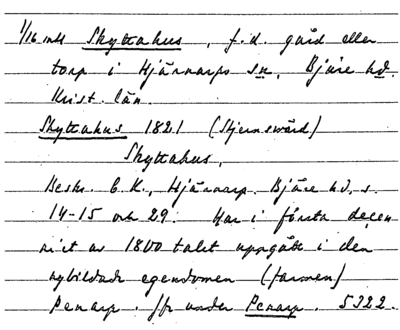 1/16 mtl Skyttahus, f.d. gård eller
torp i Hjärnarps sn, Bjäre hd.
Krist. län.
Skyttahus 1821 (Stjernswärd)
Skyttahus,
Beskr. C. K., Hjärnarp. Bjäre hd, s.
14-15 och 29. Har i första decen
niet av 1800 talet uppgått i den
nybildade egendomen (farmen)
Penarp. Jfr under Penarp. 5322.